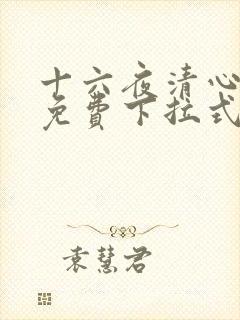 十六夜清心
免費下拉式
袁慧君